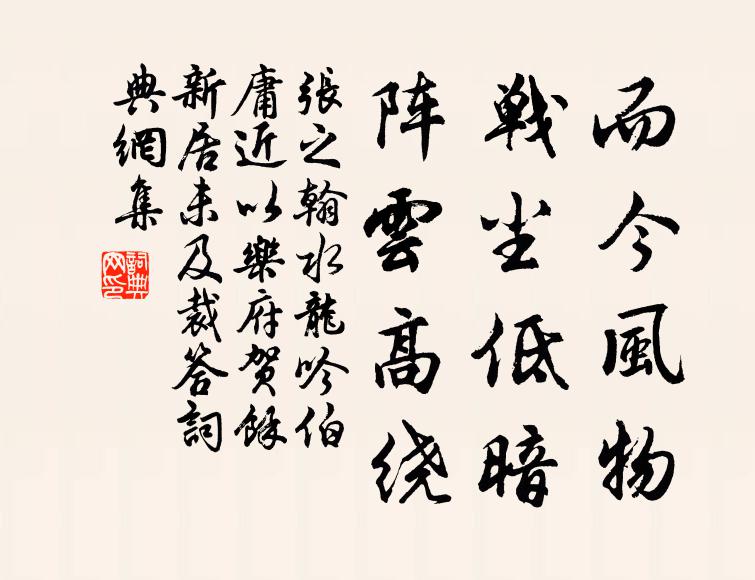 而今風物
戦尘低暗
阵雲高绕
張之翰水龍吟伯
庸近以樂府賀餘
新居未及裁答詞
典網集
詞典
网印